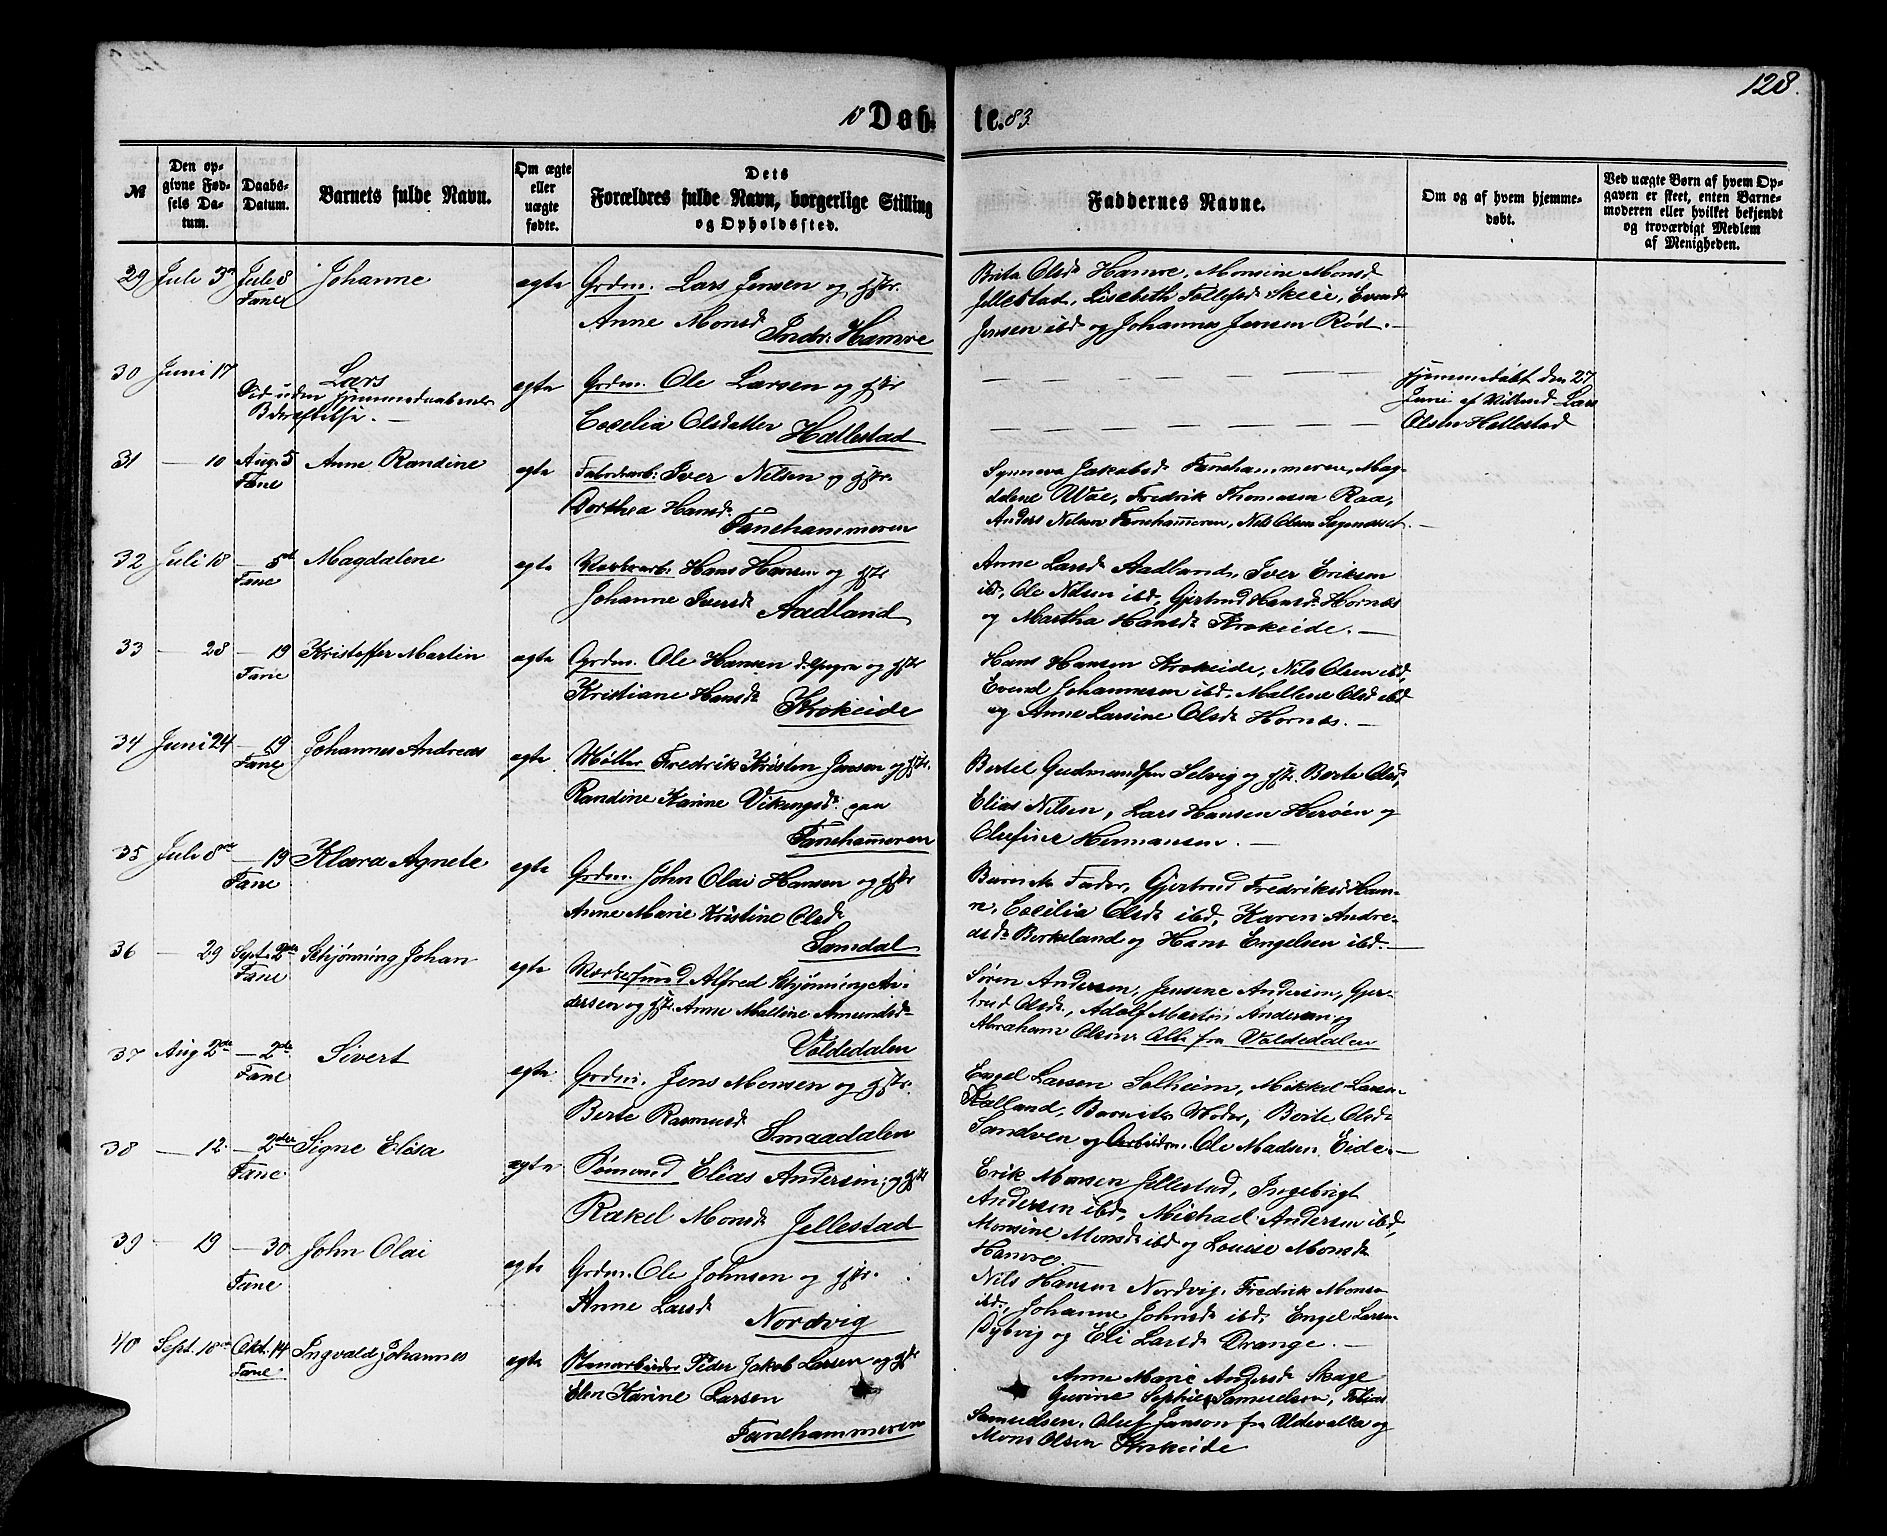 128.
18 Døb- te. 83.
№
Den op-
givne Fød-
sels Da-
tum.
Daabs-
Datum.
Barnets fulde Navn.
Om ægte
eller
uægte
fødte.
Dets
Forældres fulde Navn, borgerlige Stilling
og Opholdssted.
Faddernes Navne.
Om og af hvem hjemme-
døbt.
Ved uægte Børn af hvem Op-
gaven er skeet, enten Barne-
moderen eller hvilket bekjendt
og troværdigt Medlem
af Menigheden.
29 Juli 3 Juli 8 Johanne egte Grdm. Lars Jensen og Hstr.
Fane
Anne Monsd Indr. Hamre
Brita Olsd Hamre, Monsine Monsd
Jellestad, Lisebeth Tollefsd Skeie, Evend
Jensen ibd og Johannes Jensen Rød. —
30 Juni 17 Lars egte Grdm. Ole Larsen og Hstr
Død uden Hjemmedaabens
Bekræftelse. —
Cecelia Olsdatter Hallestad
Hjemmedøbt den 27
Juni af Lars
Olsen Hallestad
31 — 10 Aug. 5 Anne Randine egte Fabrikarb. Iver Nilsen og Hstr.
Fane
Dorthea Hansd. Fanehammeren
Synneva Jakobsd Fanehammeren, Mag-
dalene Woe, Fredrik Thomasen Raa,
Anders Nelsen Fanehammeren, Nils Olsen —
32 Juli 18 — 5te Magdalene egte Hans Hansen og Hstr
Fane
Johanne Iversd. Aadland
Anne Larsd Aadland, Iver Eriksen
ibd, Ole Nilsen ibd, Gjertrud Hansd. Hornæs
og Martha Hansd. Krokeide. —
33 — 28 — 19 Kristoffer Martin egte Grdm. Ole Hansen d. Yngre og Hstr
Fane
Kristiane Hansd. Krokeide
Hans Hansen Krokeide, Nils Olsen ibd,
Evend Johannesen ibd, Mallene Olsd ibd
og Anne Larsine Olsd. Hornæs. —
34 Juni 24 — 19 Johannes Andreas egte Møller Fredrik Kristen Jansen og Hstr.
Fane
Randine Karine Vikingsd. paa
Fanehammeren
Bertel Gudmundsen Selvig og Hstr. Berte Olsd,
Elias Nilsen, Lars Hansen Herøen og
Olufine Hermansen. —
35 Juli 8de — 19 Klara Agnete egte Grdm. John Olai Hansen og Hstr
Fane
Anne Marie Kristine Olsd.
Samdal
Barnets Fader, Gjertrud Fredriksd Ham-
n, Cecilia Olsd ibd, Karen Andre-
asd. Birkeland og Hans Engelsen ibd. —
36 — 29 Sept. 2den Schjønning Johan egte Alfred Schjønning An-
Fane
dersen og Hstr. Anne Malline Amundsd.
Voldedalen
Søren Andersen, Jensine Andersen, Gjer-
trud Olsd., Adolf Martin Andersen og
Abraham Olsen, Alle fra Voldedalen
37 Aug 2den — 2den Sivert egte Grdm. Jens Monsen og Hstr.
Fane
Berte Rasmusd. Smaadalen
Engel Larsen Solheim, Mikkel Larsen
Kalland, Barnets Moder, Berte Olsd.
Sandven og Arbeidsm. Ole Madsen Eide. —
38 — 12 — 2den Signe Elisa egte Sømand Elias Andersen og Hstr
Fane
Rakel Monsd. Jellestad
Erik Monsen Jellestad, Ingebrigt
Andersen ibd, Michael Andersen ibd,
Monsine Monsd. ibd og Louise Monsd.
Hamre. —
39 — 19 — 30 John Olai egte Grdm. Ole Johnsen og Hstr.
Fane
Anne Larsd. Nordvig
Nils Hansen Nordvig, Fredrik Monsen
ibd., Johanne Johnsd. ibd, Engel Larsen
Dybvig og Eli Larsd. Drange. —
40 Sept. 10de Okt. 14 Ingvald Johannes egte Stenarbeider Peder Jakob Larsen og Hstr
Fane
Elen Karine Larsen
Fanehammeren
Anne Marie Andersd. Skage
Gurine Sophie Samuelsen, Tobias
Samuelsen, Oluf Janson fra Aldevalka og
Mons Olsen Krokeide